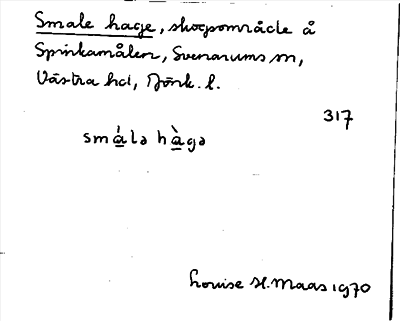 Smale hage, skogsområde å
Spinkamålen, Svenarums sn,
Västra hd, Jönk. l.
317
smá̱lə hà̱gə
Louise H. Maas 1970